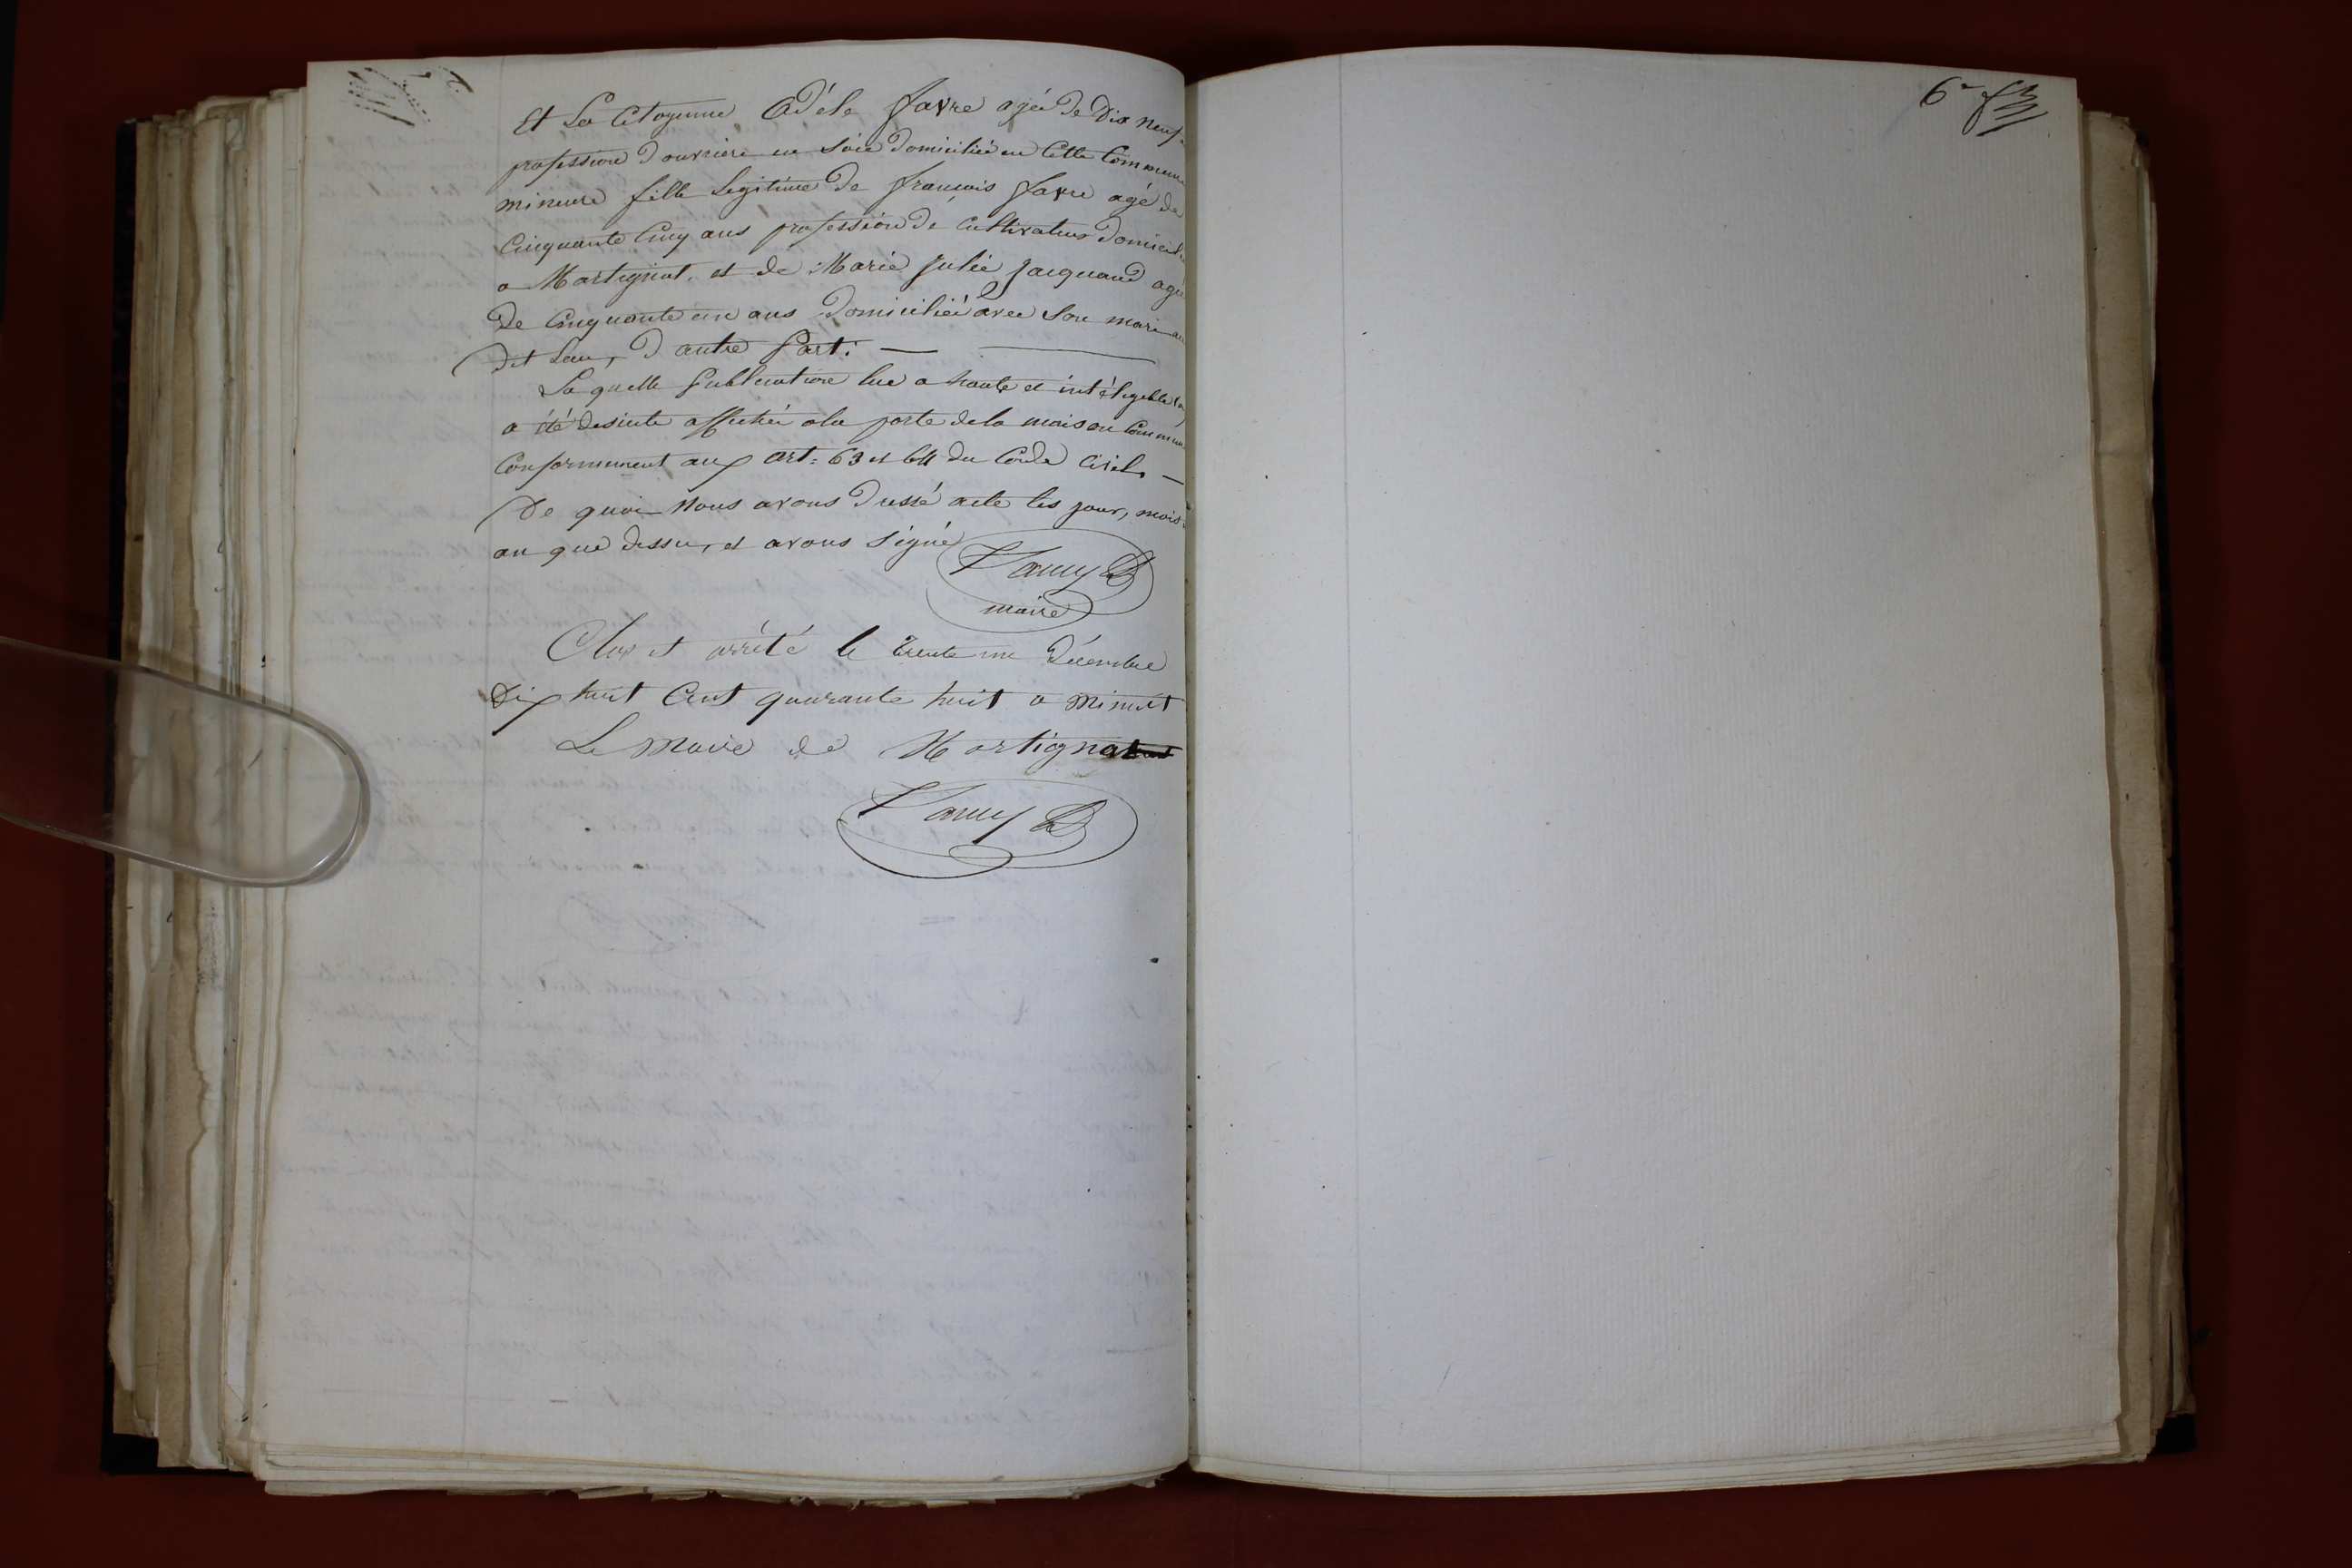 Et La Citoyenne Adéle favre agée de Dix neuf
profession d'ouvriere en Soie domiciliée en Cette Commune
mineure fille Legitime de francois favre agé de
Cinquante Cinq ans profession de Cultivateur domicil
a Martignat, et de Marie julie jacquand agé
De Cinquante un ans domiciliée avec Son mari au
dit Lieu, d'autre Part. —
La quelle Publication lue a haute et intéligeble
a été desuite affichée a la porte de la maison Commun
Conformement aux art: 63 et 64 du Code Civil. —
De quoi Nous avons Dressé acte les jour, mois
an que dessus, et avons signé
maire
Clos et arrêté le trente un Décembre
Dix huit Cent quarante huit a minuit
Le Maire de Martignat
6e